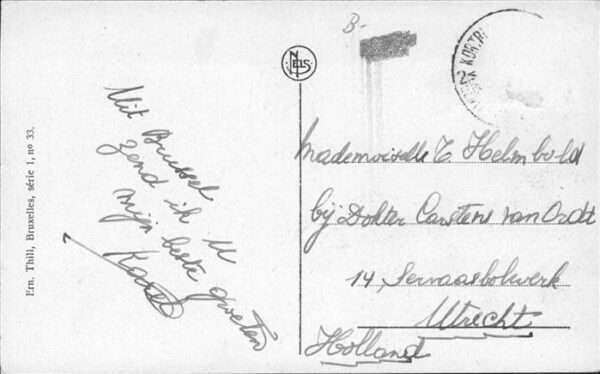 Ern. Thill, Bruxelles, série 1, no 33.
Uit Brussel
zend ik U
mijn beste groeten
Karel
NELS
B-
KORTR
2
Mademoiselle C. Helmbold
bij Dokter Carstens van Ordt
14 Servaasbolwerk
Utrecht
Holland